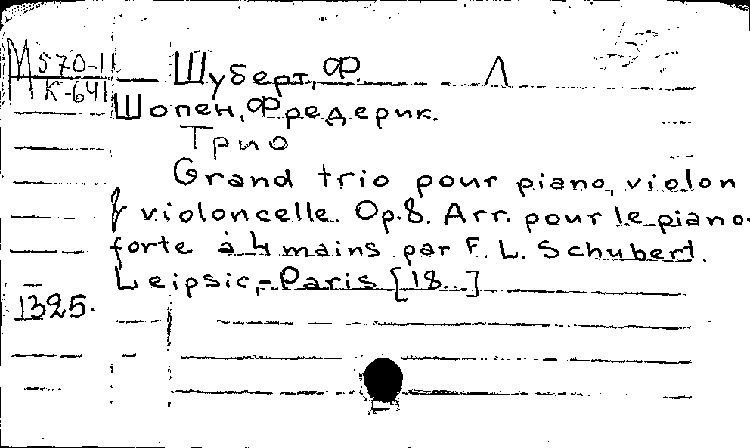 М 570-11
К-641
Шуберт, Ф. Л
Шопен, Фредерик.
Трио
Grand trio pour piano, violon
& violoncelle. Op.8. Arr. pour le piano-
forte à 4 mains par F. L. Schubert.
Leipsic,-Paris [18..]
1325.